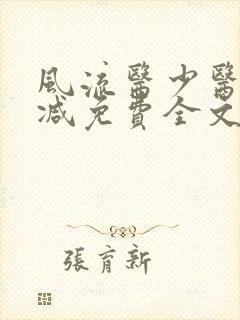 風流醫少醫
減免費全文
張育新